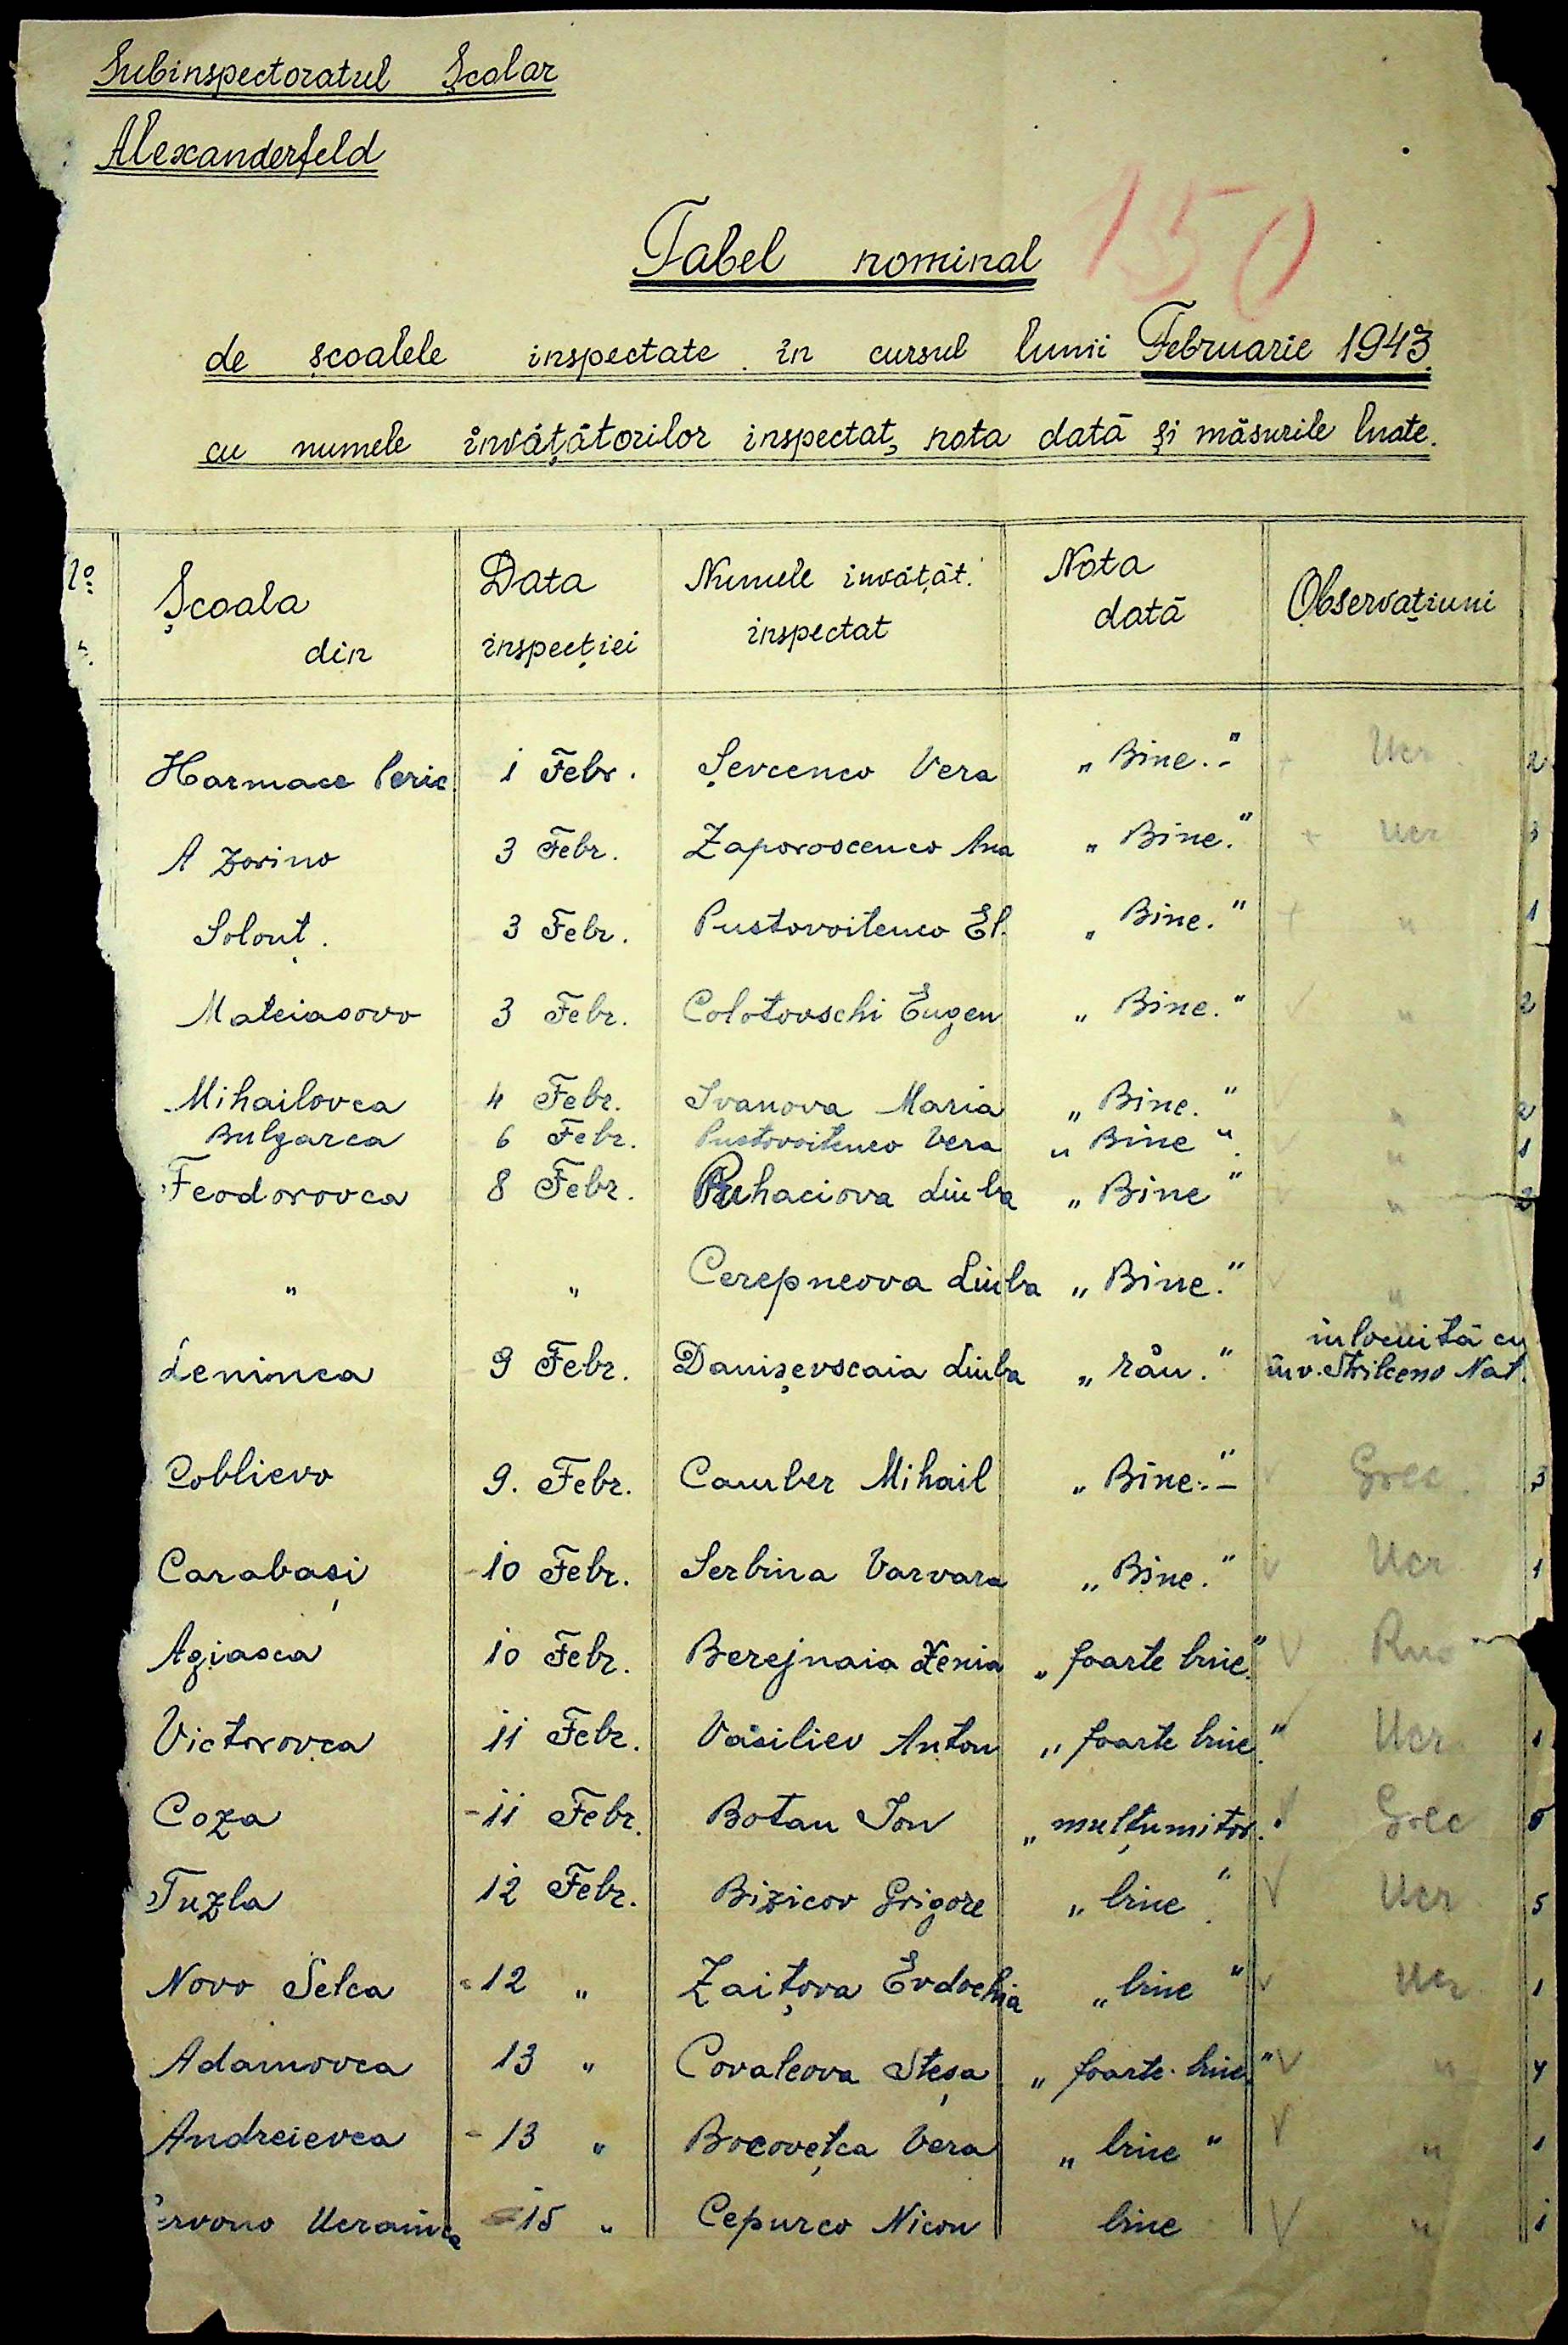 Subinspectoratul Școlar
Alexanderfeld
150
Tabel nominal
de școalele inspectate în cursul lunii Februarie 1943.
cu numele învățătorilor inspectat, nota dată și măsurile luate.
Școala din | Data inspecției | Numele învățăt. inspectat | Nota dată | Observațiuni
Harmace | 1 Febr. | Șevcenco Vera | „Bine.” | + Ucr. 2
A Zorino | 3 Febr. | Zaporoscenco Ana | „Bine.” | + Ucr 3
Solonț. | 3 Febr. | Pustovoitenco El. | „Bine.” | + " 1
Mateiasovo | 3 Febr. | Colotovschi Eugen | „Bine.” | v " 2
Mihailovca | 4 Febr. | Ivanova Maria | „Bine.” | v " 2
Bulgarca | 6 Febr. | Pustovoitenco Vera | „Bine”. | v " 1
Feodorovca | 8 Febr. | Puhaciova Liuba | „Bine” | v " 2
" | " | Cerepneova Liuba | „Bine.” | v "
Leninca | 9 Febr. | Danișevscaia Liuba | „rău.” | înlocuită cu înv. Strilceno Nat.
Coblievo | 9. Febr. | Camber Mihail | „Bine.”- | v Grec. 3
Carabași | -10 Febr. | Serbina Varvara | „Bine.” | v Ucr 1
Agiasca | 10 Febr. | Berejnaia Xenia | „foarte bine.” | v Rus
Victorovca | 11 Febr. | Vasiliev Anton | „foarte bine.” | v Ucr. 1
Coza | -11 Febr. | Botan Ion | „mulțumitor.” | v Grec
Tuzla | 12 Febr. | Bizicov Grigore | „bine”. | v Ucr 5
Novo Selca | -12 " | Zaițova Evdochia | „bine” | v Ucr 1
Adamovca | 13 " | Covaleova Steșa | „foarte bine.” | v " 4
Andreievca | -13 " | Bocovețca Vera | „bine” | v " 1
ervono Ucrainca | -15 " | Cepurco Nicon | bine | v " 1